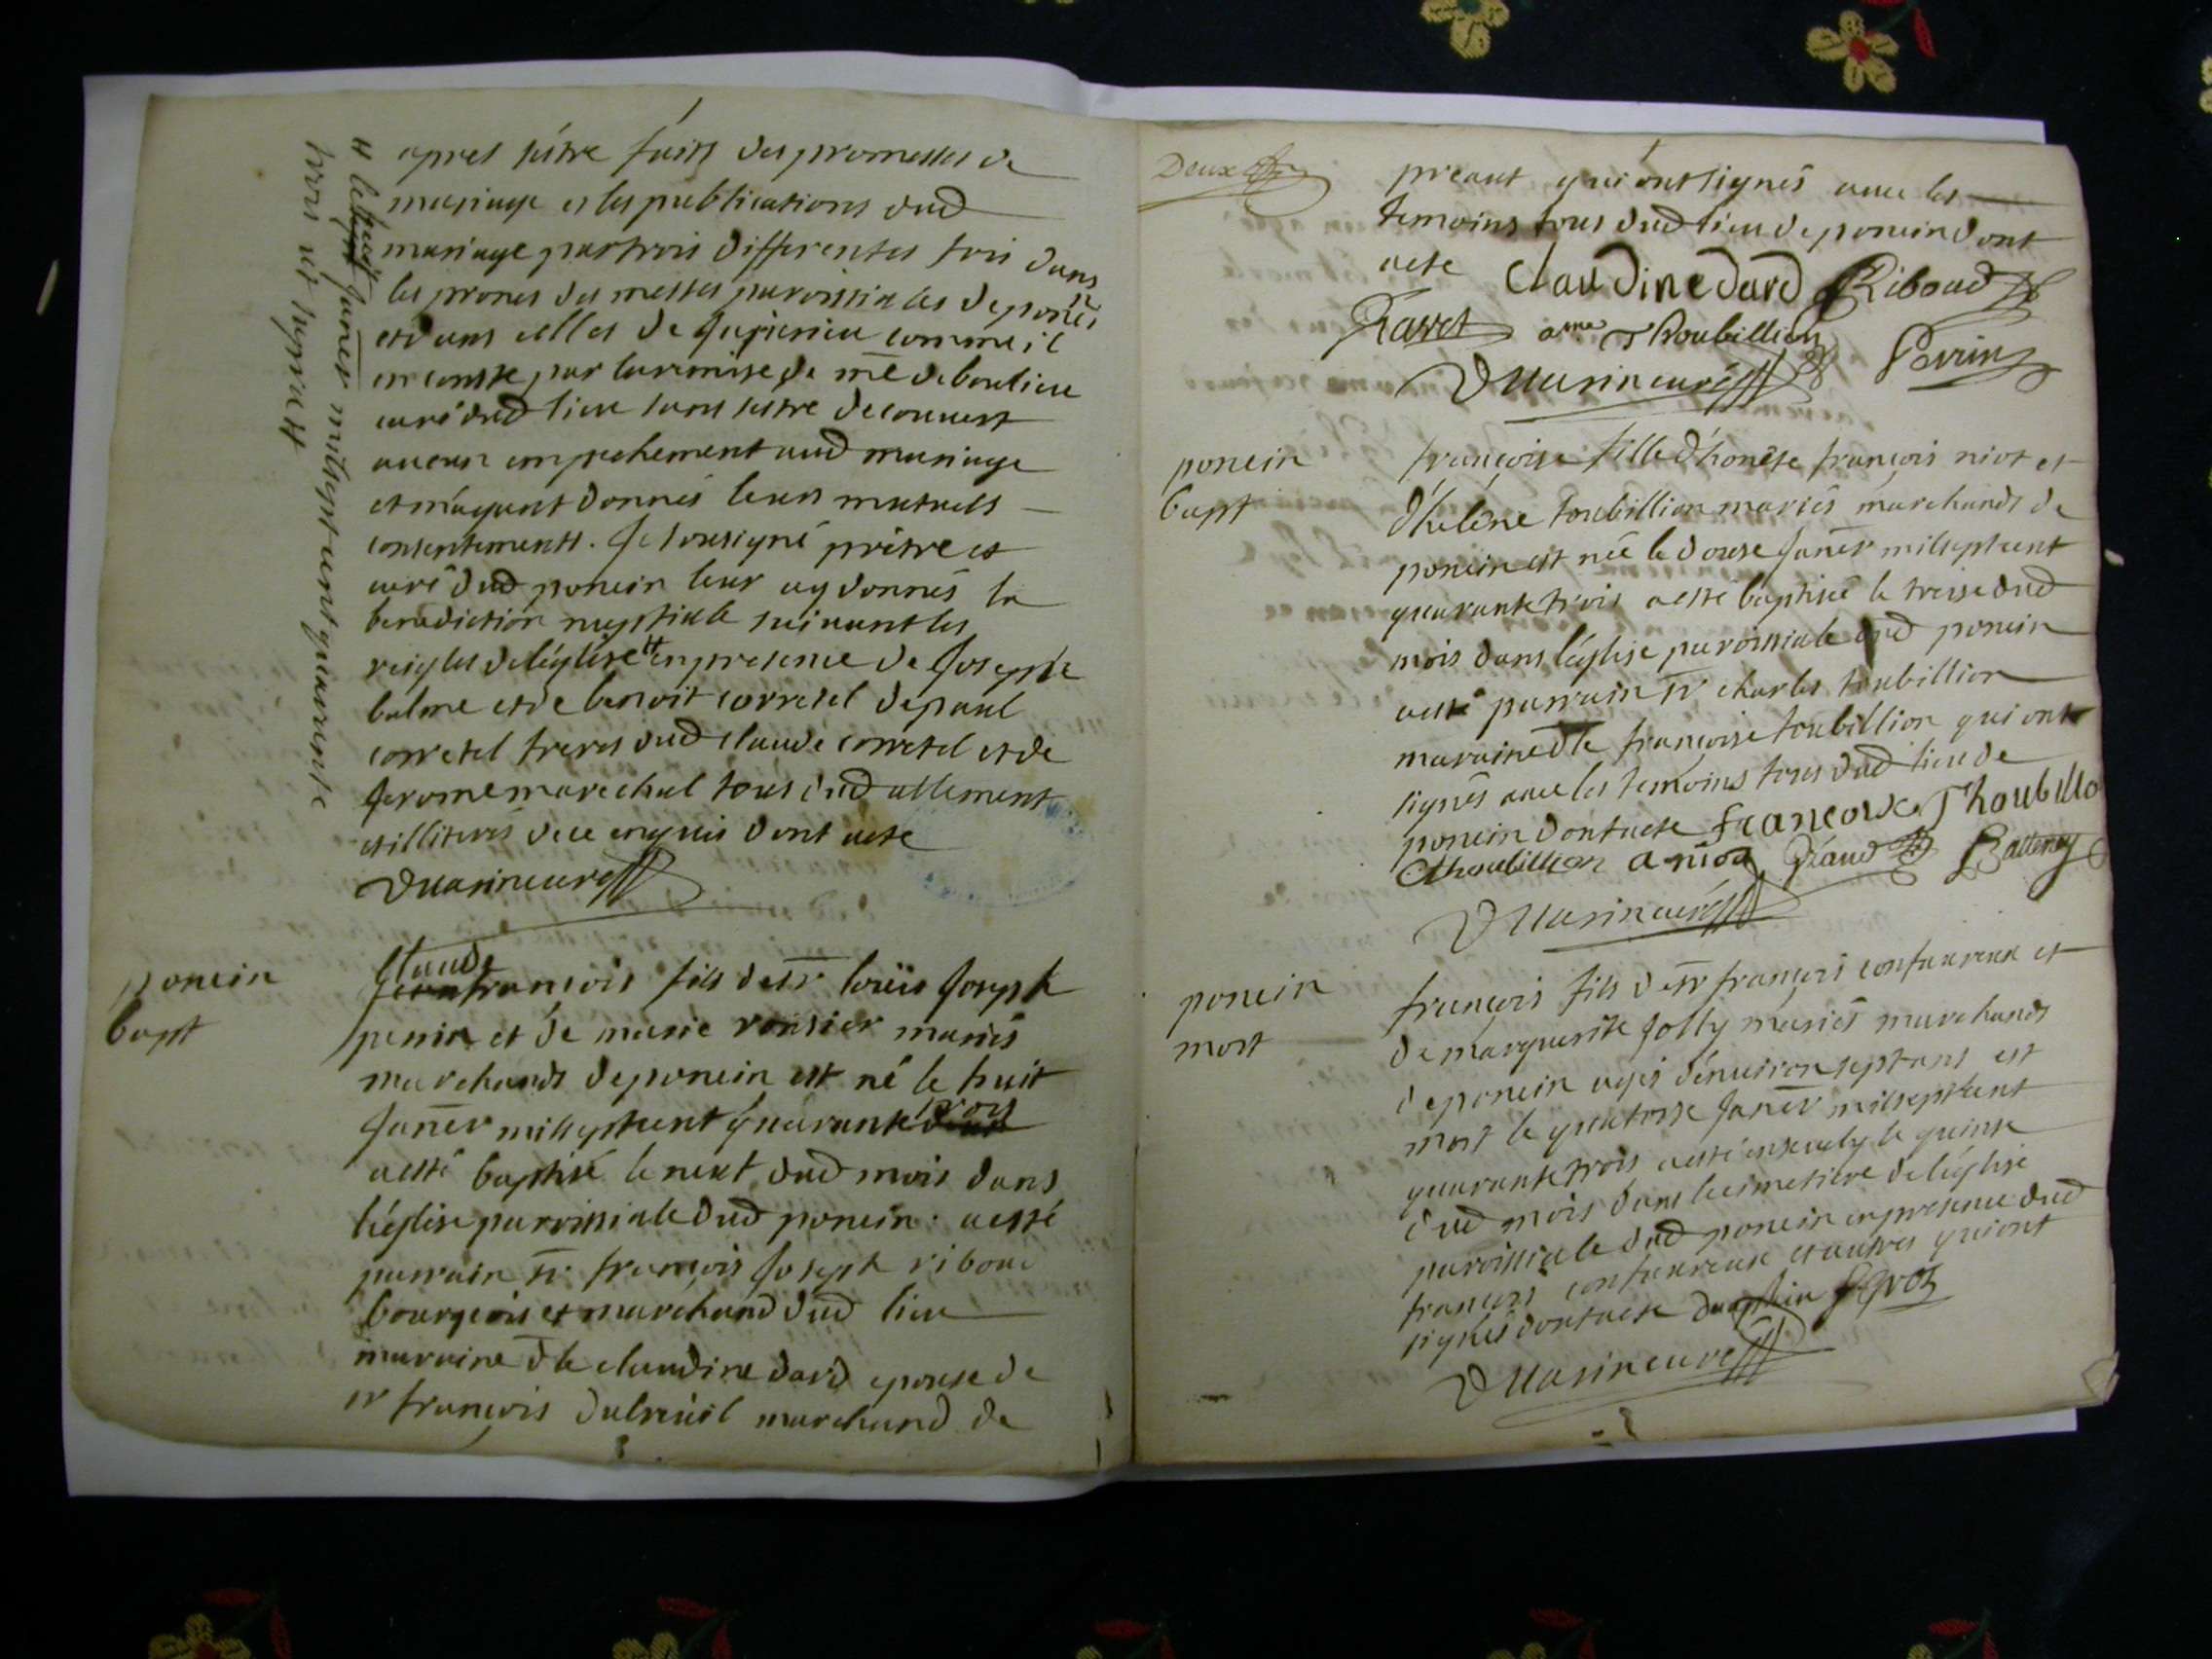 apres s'estre faits des promesses de
mariage et les publications dud
mariage par trois differentes fois dans
les prones des messes paroissiales de poncin
et dans celles de jujurieu comme il
en conste par la remise de mre deboulieu
curé dud lieu sans s'estre decouvert
aucun empechement aud mariage
et m'ayant donnés leurs mutuels
consentements. Je soussigné prêtre et
curé dud poncin leur ay donnés la
benediction nuptiale suivant les
reigles de l'église # en presence de Joseph
balme et de benoit corretel de paul
corretel freres dud claude corretel et de
Jerome marechal tous dud allement
et illiterés de ce enquis dont acte
Duarin curé
# le huit janer mil sept cent quarante
trois
poncin
bapt
Claude
françois fils de sr loüis Joseph
perrin et de marie rousier mariés
marchands de poncin est né le huit
Janer mil sept cent quarante trois
a esté baptisé le neuf dud mois dans
l'église paroissiale dud poncin. a esté
parrain sr françois Joseph riboud
bourgeois et marchand dud lieu
maraine dle claudine dard epouse de
sr françois dubreüil marchand de
Deux
preaut qui ont signés avec les
temoins tous dud lieu de poncin dont
acte Claudine dard Riboud
Ravet Thoubillion Perrin
Duarin curé
poncin
bapt
françoise fille d'honeste françois niot et
d'helene toubillion mariés marchands de
poncin est née le douse Janer mil sept cent
quarante trois a esté baptisée le treise dud
mois dans l'église paroissiale dud poncin
a esté parrain sr charles toubillion
maraine dle françoise toubillion qui ont
signés avec les temoins tous dud lieu de
poncin dont acte francoise Thoubillo
Cthoubillion a niot Batteney
Duarin curé
poncin
mort
françois fils de sr françois confavreux et
de marguerite Jolly mariés marchands
de poncin agés d'environ sept ans est
mort le quatorse Janer mil sept cent
quarante trois a esté ensevely le quinse
dud mois dans le cimetiere de l'église
paroissiale dud poncin en presence dud
françois confavreux et autres qui ont
signés dont acte dauphin
Duarin curé